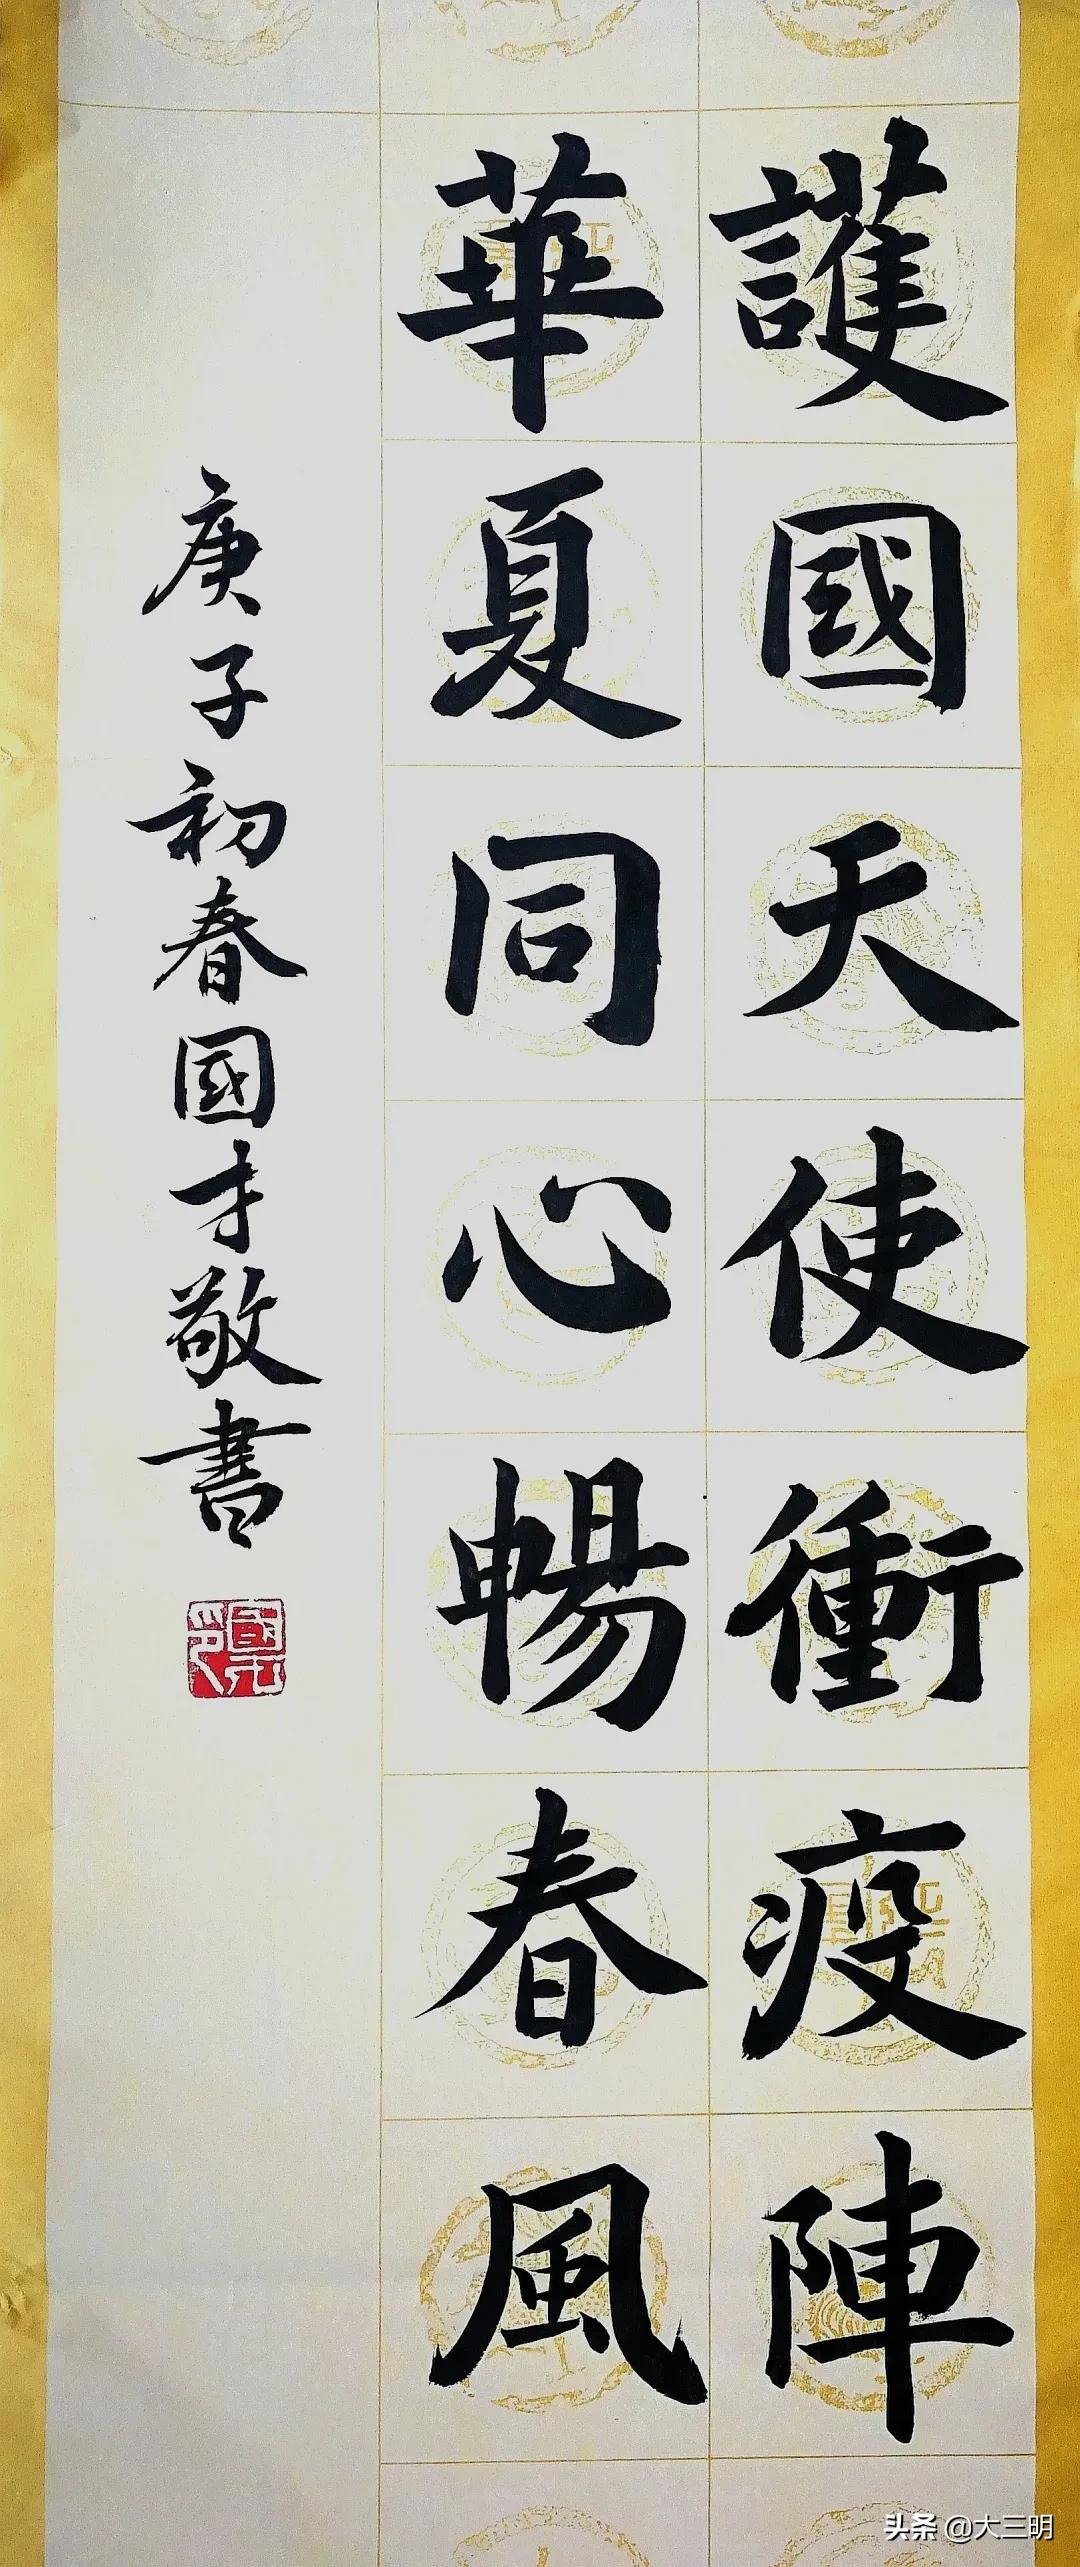 護國天使衝疫陣
華夏同心暢春風
庚子初春國才敬書
头条 @大三明